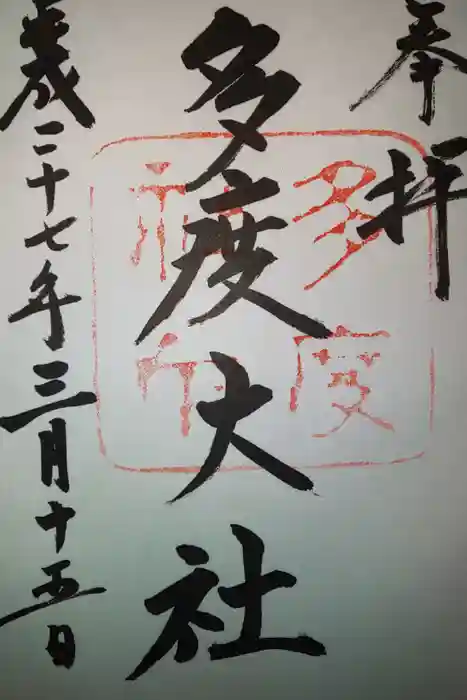 奉拝
多度大社
平成二十七年三月十五日
多度